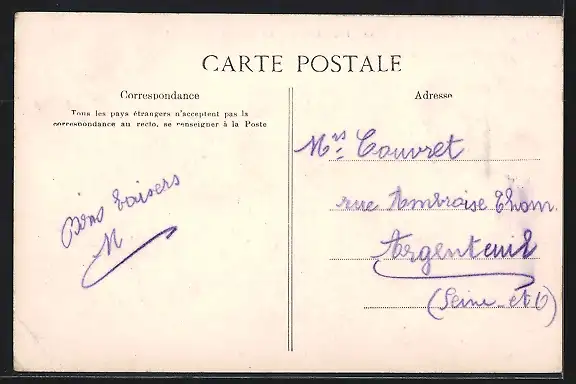 CARTE POSTALE
Correspondance
Tous les pays étrangers n'acceptent pas la
correspondance au recto, se renseigner à la Poste
Adresse
Bons baisers
M
Mrs Couvret
rue Ambroise Thom.
Argenteuil
(Seine et O)